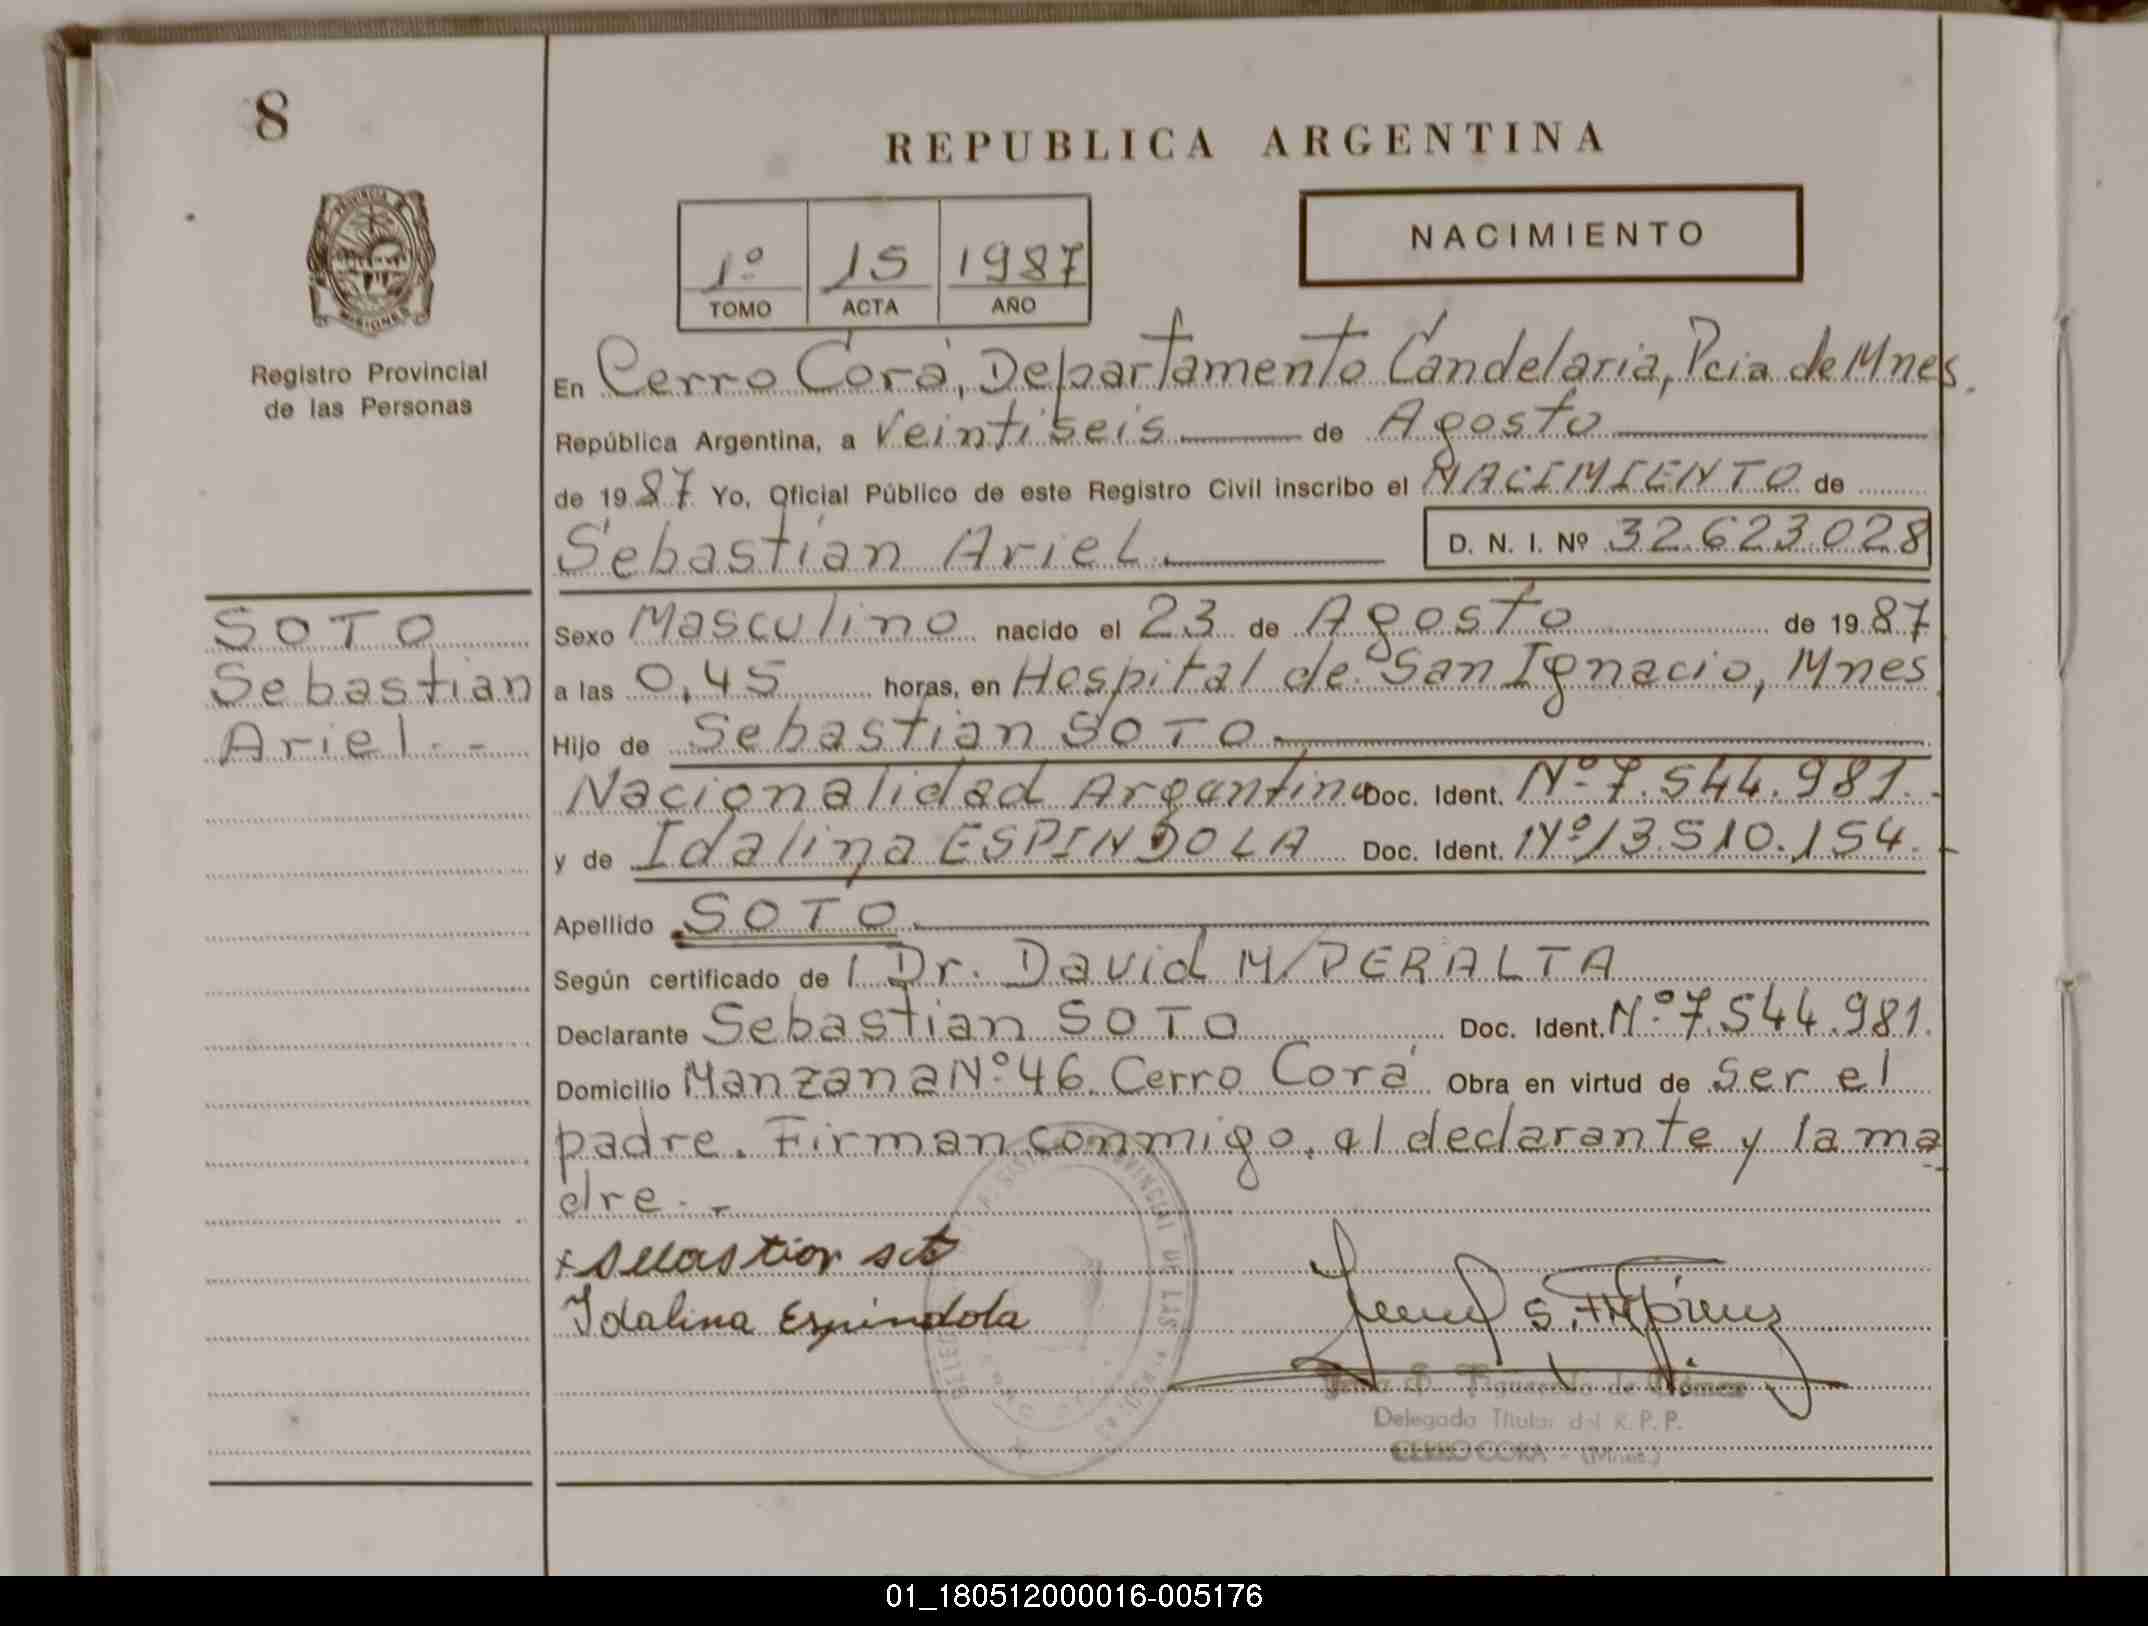 8
REPUBLICA ARGENTINA
1º 15 1987
TOMO ACTA AÑO
NACIMIENTO
PROVINCIA DE
MISIONES
Registro Provincial
de las Personas
En Cerro Corá, Departamento Candelaria, Pcia de Mnes.
República Argentina, a Veintiseis de Agosto
de 1987 Yo, Oficial Público de este Registro Civil inscribo el NACIMIENTO de
Sebastián Ariel D. N. I. Nº 32.623.028
SOTO
Sebastian
Ariel.-
Sexo Masculino nacido el 23 de Agosto de 1987
a las 0,45 horas, en Hospital de San Ignacio, Mnes
Hijo de Sebastian SOTO.
Nacionalidad Argentina Doc. Ident. Nº 7.544.981.-
y de Idalina ESPINDOLA Doc. Ident. Nº 13.510.154.-
Apellido SOTO
Según certificado de l Dr. David M. PERALTA
Declarante Sebastian SOTO Doc. Ident. Nº 7.544.981.
Domicilio Manzana Nº 46. Cerro Corá Obra en virtud de Ser el
padre. Firman conmigo, el declarante y la ma
dre.-
x Sebastion soto
Idalina Espindola
Figueredo de Gómez
Delegada Titular del R. P. P.
CERRO CORA - (Mnes.)
01_180512000016-005176